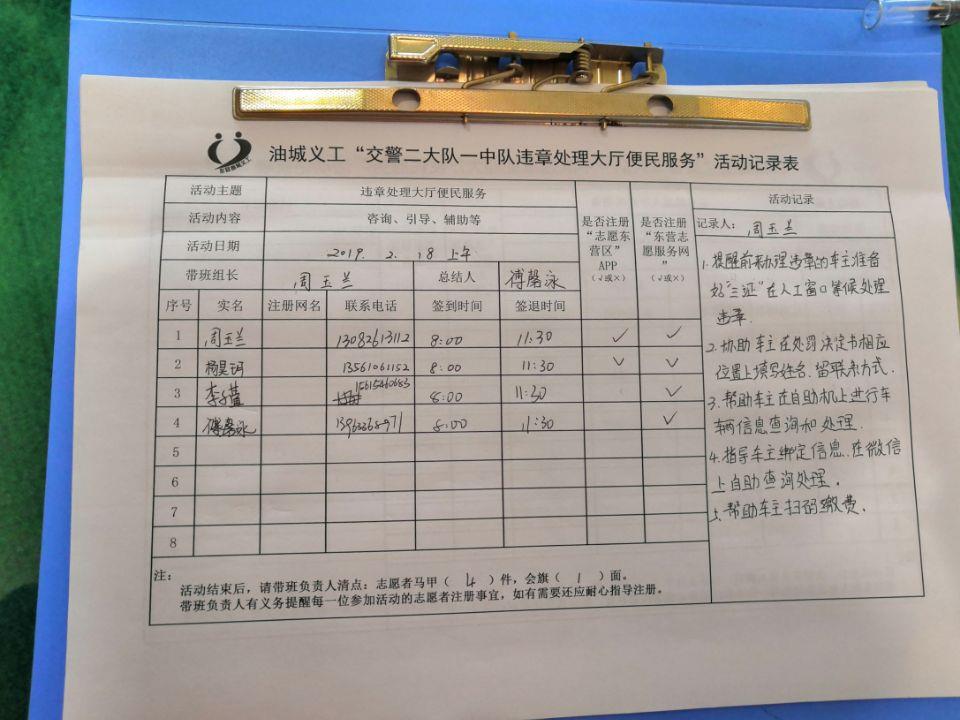 油城义工“交警二大队一中队违章处理大厅便民服务”活动记录表
活动主题 违章处理大厅便民服务
活动内容 咨询、引导、辅助等
活动日期 2019. 2. 18 上午
带班组长 周玉兰 总结人 傅磬泳
是否注册“志愿东营区”APP（√或×）
是否注册“东营志愿服务网”（√或×）
序号 实名 注册网名 联系电话 签到时间 签退时间
1 周玉兰 13082613112 8:00 11:30 ✓ ✓
2 杨昊珂 13561061152 8:00 11:30 ✓ ✓
3 15615460683 8:00 11:30 ✓
4 傅磬泳 8:00 11:30 ✓
5
6
7
8
活动记录
记录人：周玉兰
1.提醒前来办理违章的车主准备
好“三证”在人工窗口等候处理
违章.
2.协助车主在处罚决定书相应
位置上填写姓名、留联系方式.
3.帮助车主在自助机上进行车
辆信息查询和处理.
4.指导车主绑定信息.在微信
上自助查询处理.
5.帮助车主扫码缴费.
注：
活动结束后，请带班负责人清点：志愿者马甲（ 4 ）件，会旗（ 1 ）面。
带班负责人有义务提醒每一位参加活动的志愿者注册事宜，如有需要还应耐心指导注册。